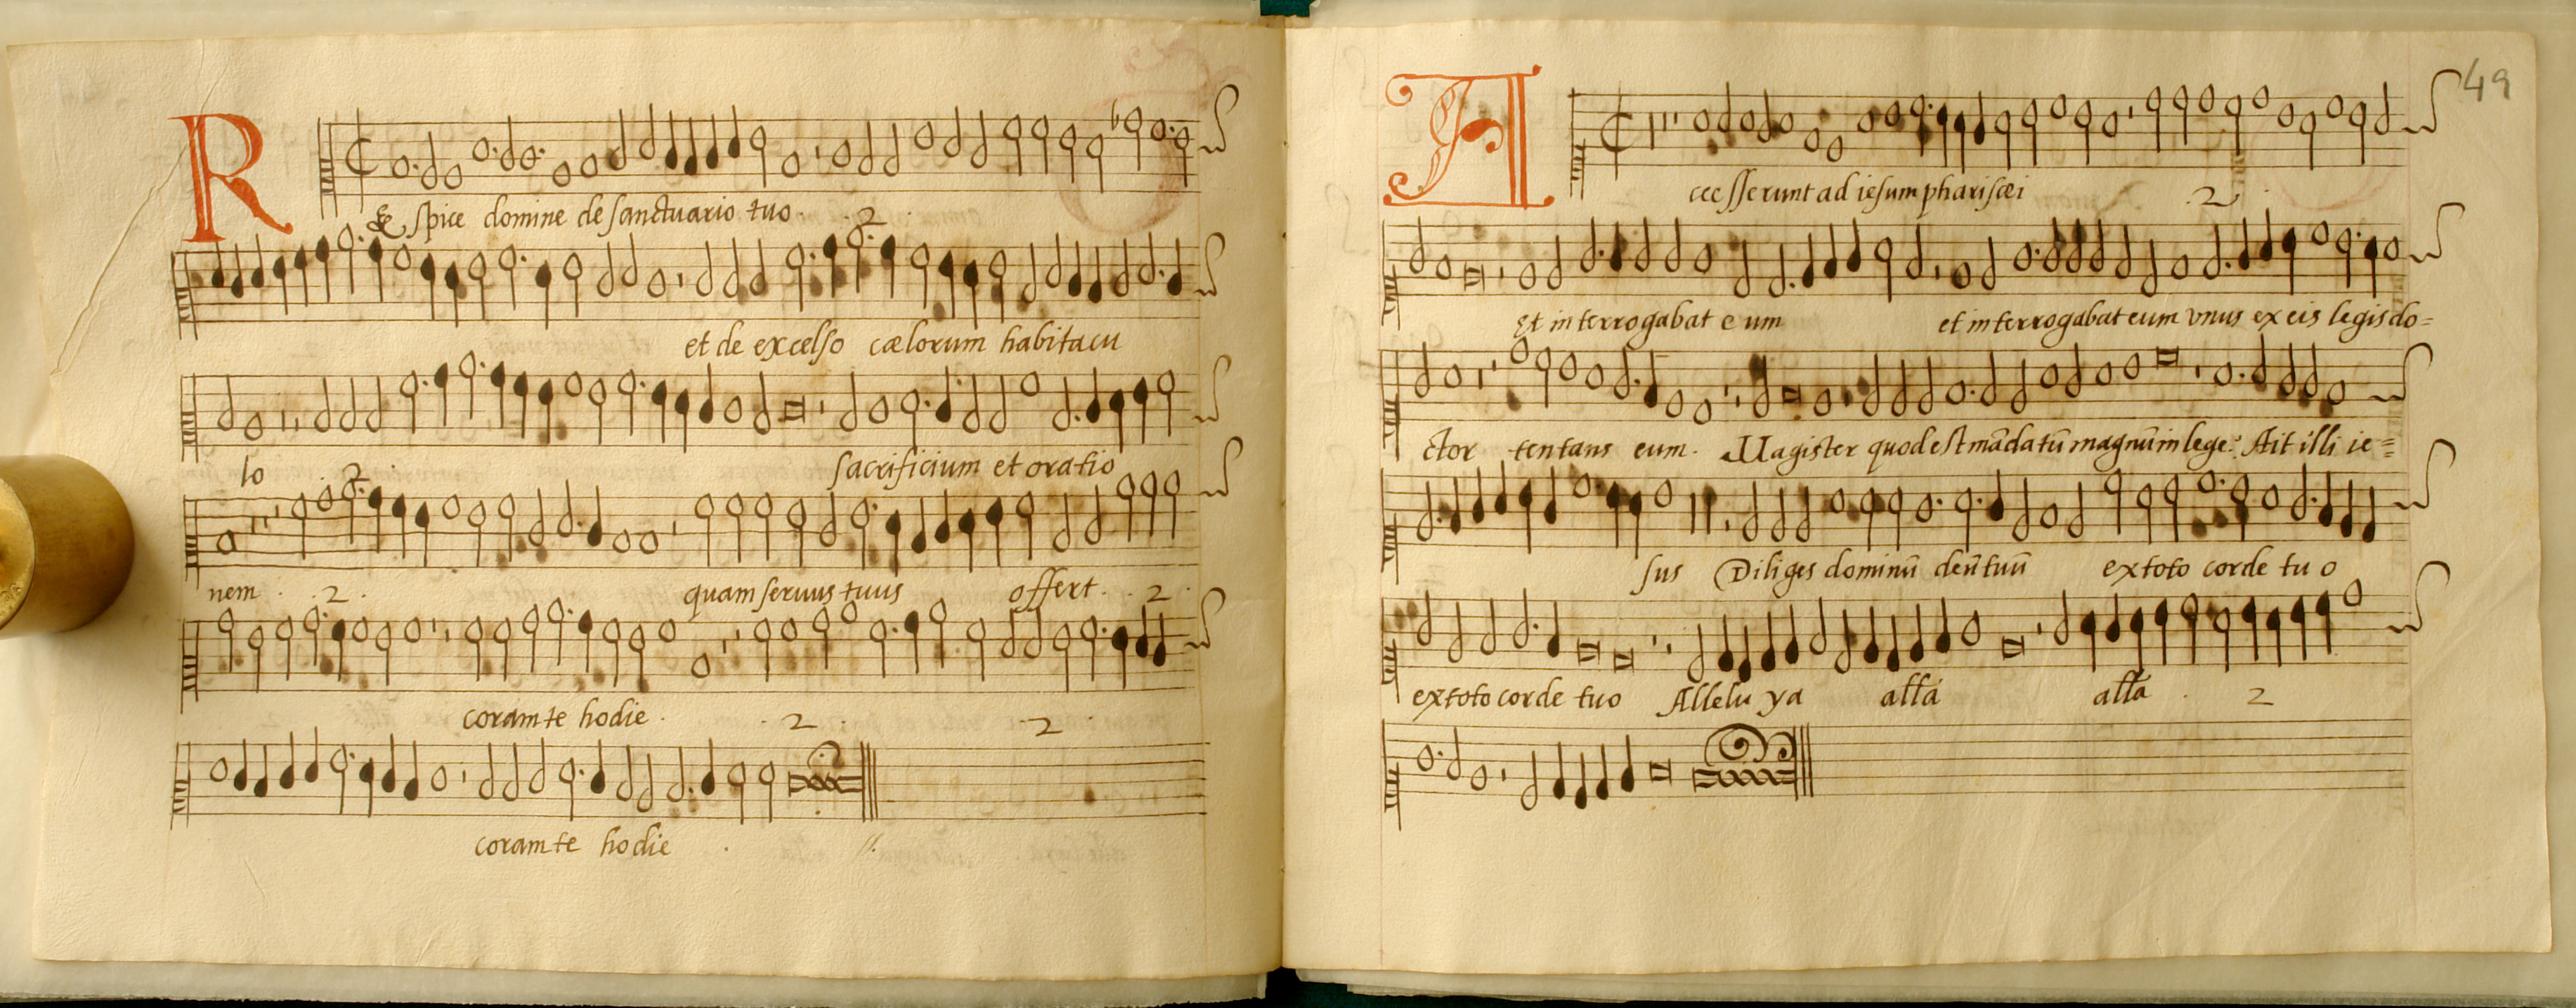 Respice domine de sanctuario tuo . . 2 .
et de excelso cælorum habitacu
lo . 2 . sacrificium et oratio
nem . . 2 . quam seruus tuus offert . . 2 .
coram te hodie . . 2 . . 2 .
coram te hodie .
49
Accesserunt ad iesum pharisæi . 2 .
Et interrogabat eum et interrogabat eum vnus ex eis legis do=
ctor tentans eum . Magister quod est mādatū magnū in lege ? Ait illi ie=
sus Diliges dominū deū tuū ex toto corde tuo
ex toto corde tuo Alleluya alła alła . 2